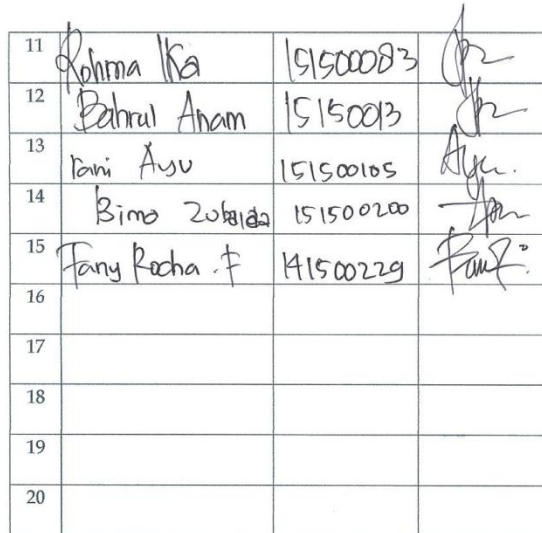 11 Rohma Ika 151500083
12 Bahrul Anam 15150013
13 rani Ayu 151500105 Ayu.
14 Bima Zubaida 151500200
15 Fany Rocha .F 141500229
16
17
18
19
20